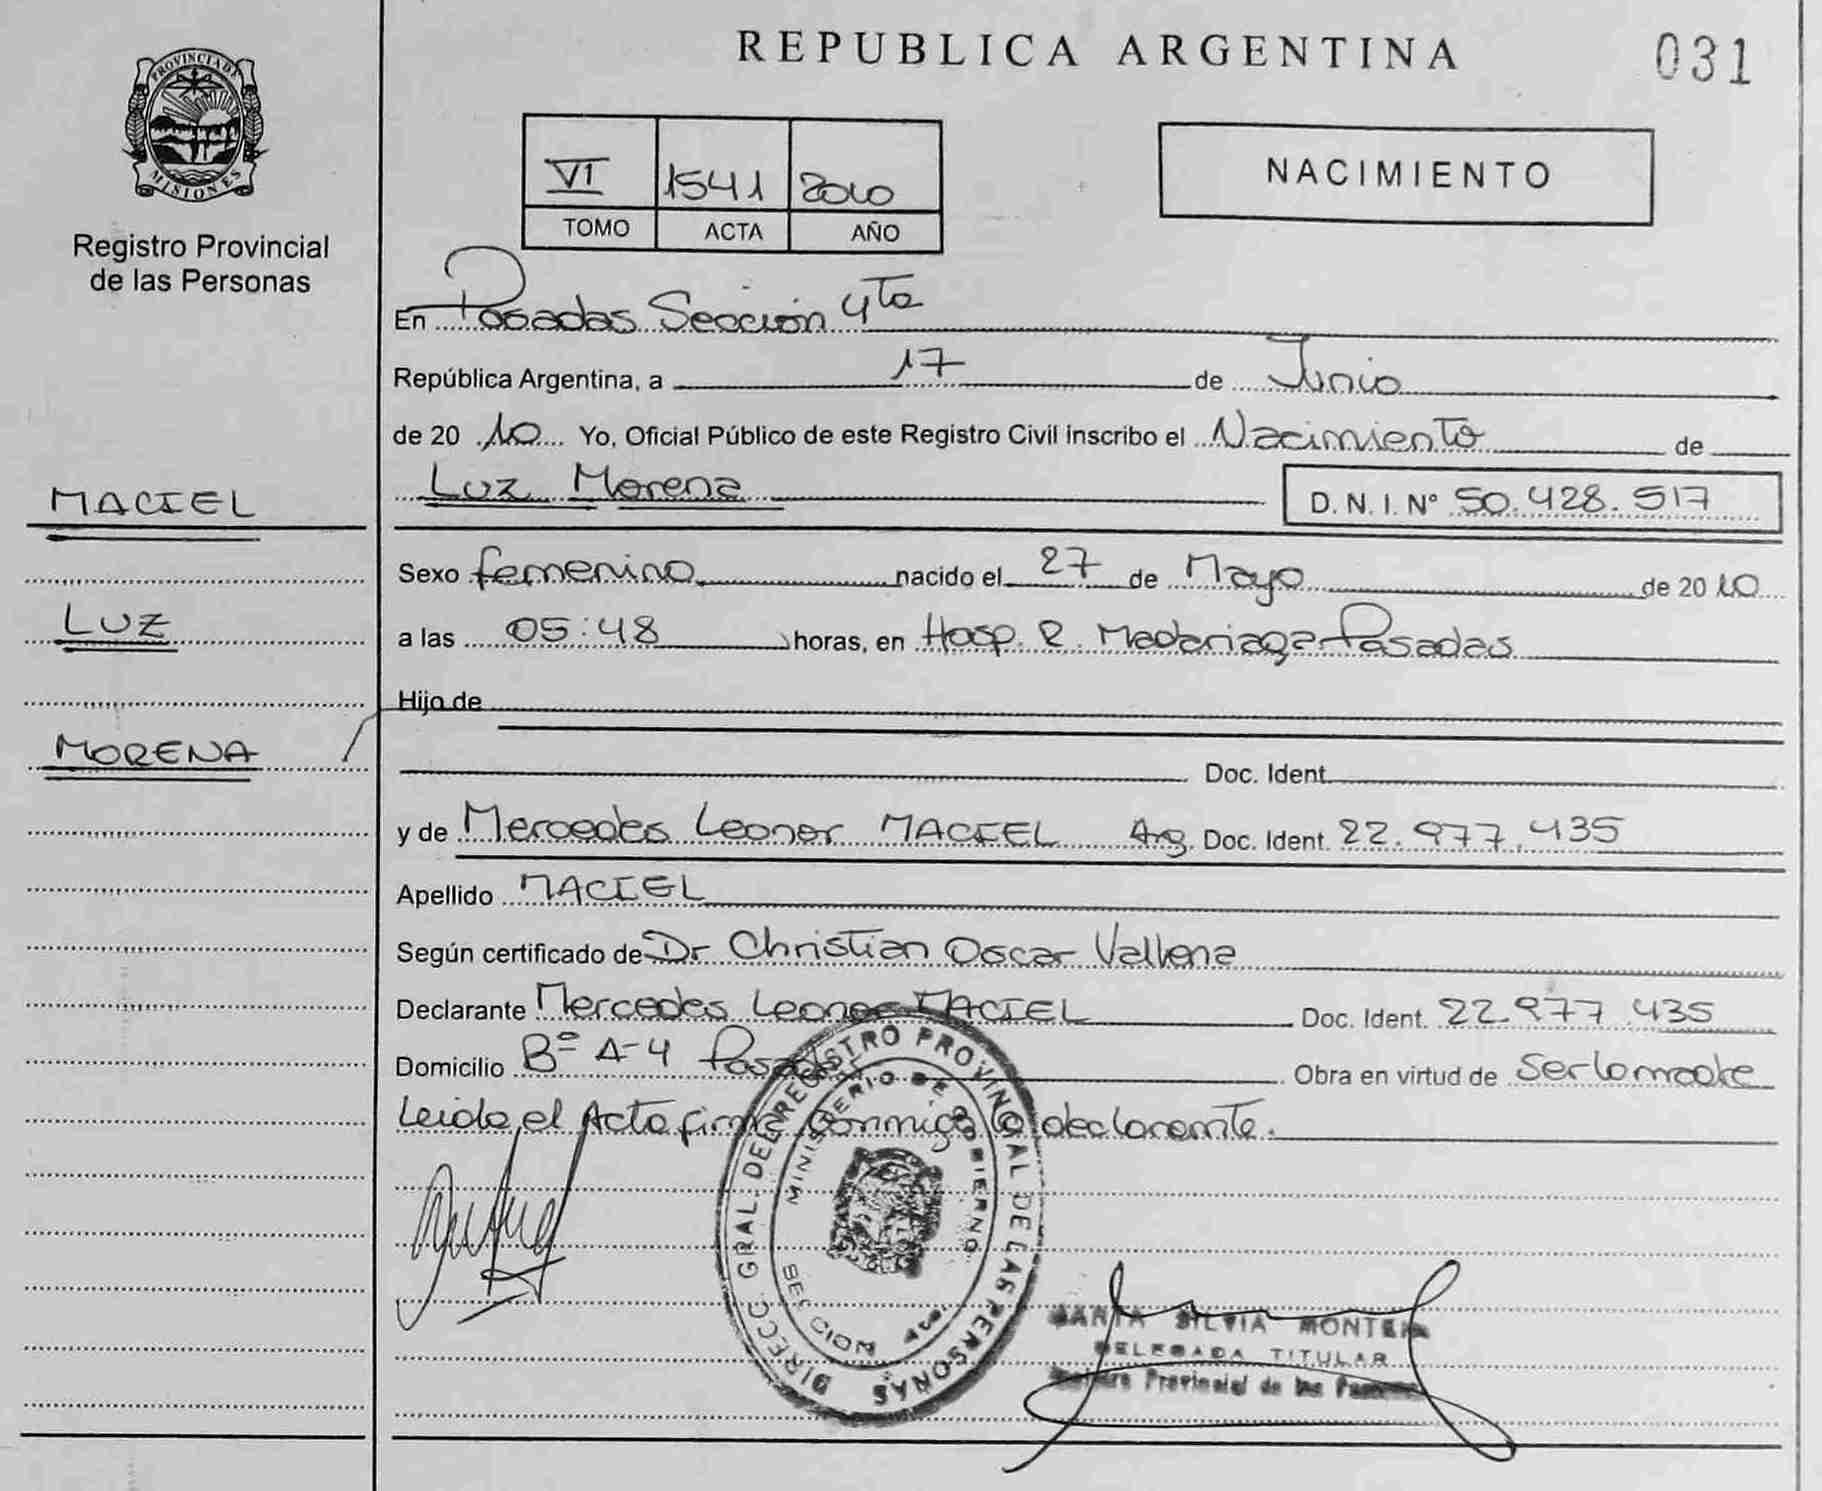 REPUBLICA ARGENTINA
031
PROVINCIA DE
MISIONES
Registro Provincial
de las Personas
VI 1541 2010
TOMO ACTA AÑO
NACIMIENTO
En Posadas Sección 4ta
República Argentina, a 17 de Junio
de 20 10 Yo, Oficial Público de este Registro Civil inscribo el Nacimiento de
Luz Morena D. N. I. N° 50.428.517
MACIEL
Sexo femenino nacido el 27 de Mayo de 20 10
LUZ
a las 05:48 horas, en Hosp. R. Madariaga Posadas
Hijo de
MORENA
Doc. Ident.
y de Mercedes Leonor MACIEL Arg. Doc. Ident. 22.977.435
Apellido MACIEL
Según certificado de Dr Christian Oscar
Declarante Mercedes Leonor MACIEL Doc. Ident. 22.977.435
Domicilio Bº A-4 Posadas Obra en virtud de ser la madre
Leida el Acta firma conmigo la declarante.
DIRECC. GRAL. DEL REGISTRO PROVINCIAL DE LAS PERSONAS
MINISTERIO DE GOBIERNO
SECCION 4ta.
SILVIA
DELEGADA TITULAR
Provincial de las